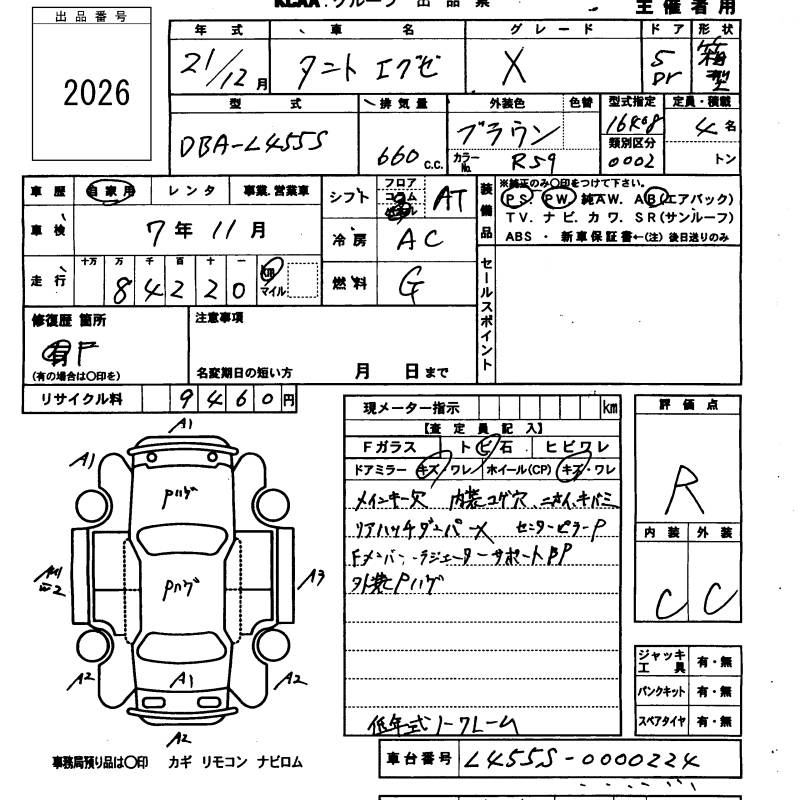 KCAA.グループ 出品票 主催者用
出品番号
2026
年式 車名 グレード ドア 形状
21/12月 タント エグゼ X 5Dr 箱型
型式 排気量 外装色 色替 型式指定 定員・積載
DBA-L455S 660c.c. ブラウン 16408 4名
カラーNo. R59 類別区分 0002 トン
車歴 自家用 レンタ 事業.営業車
車検 7年 11月
走行 十万 万 千 百 十 一
84220 km マイル
シフト フロア コラム AT
冷房 AC
燃料 G
装備品 ※純正のみ〇印をつけて下さい。
PS. PW. 純AW. AB(エアバック)
TV. ナビ. カワ. SR(サンルーフ)
ABS ・ 新車保証書←(注) 後日送りのみ
セールスポイント
修復歴 箇所
有 F
(有の場合は〇印を)
注意事項
名変期日の短い方 月 日まで
リサイクル料 9460円
現メーター指示 km
【査定員記入】
Fガラス トビ石 ヒビワレ
ドアミラー キズ・ワレ ホイール(CP) キズ・ワレ
メインキー欠 内装コゲ穴
リアハッチダンパーX センターピラーP
Fメンバー ラジエーターサポートP
外装Pハゲ
低年式ノークレーム
評価点
R
内装 外装
C C
ジャッキ工具 有・無
パンクキット 有・無
スペアタイヤ 有・無
車台番号 L455S-0000224
A1
A1
Pハゲ
Pハゲ
A3
A2
A1
A2
A2
事務局預り品は〇印 カギ リモコン ナビロム